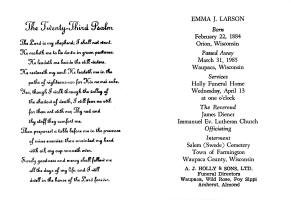 The Twenty-Third Psalm
The Lord is my shepherd; I shall not want.
He maketh me to lie down in green pastures.
He leadeth me beside the still waters.
He restoreth my soul. He leadeth me in the
paths of righteousness for His name's sake.
Yea, though I walk through the valley of
the shadow of death, I will fear no evil:
for thou art with me; Thy rod and
thy staff they comfort me.
Thou preparest a table before me in the presence
of mine enemies: thou anointest my head
with oil; my cup runneth over.
Surely goodness and mercy shall follow me
all the days of my life, and I will
dwell in the house of the Lord forever.
EMMA J. LARSON
Born
February 22, 1884
Orion, Wisconsin
Passed Away
March 31, 1985
Waupaca, Wisconsin
Services
Holly Funeral Home
Wednesday, April 13
at one o'clock
The Reverend
James Diener
Immanuel Ev. Lutheran Church
Officiating
Interment
Salem (Swede) Cemetery
Town of Farmington
Waupaca County, Wisconsin
A. J. HOLLY & SONS, LTD.
Funeral Directors
Waupaca, Wild Rose, Poy Sippi
Amherst, Almond